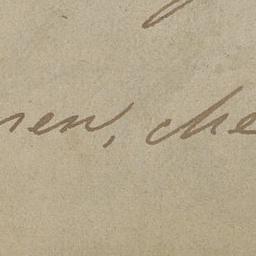 nen, che